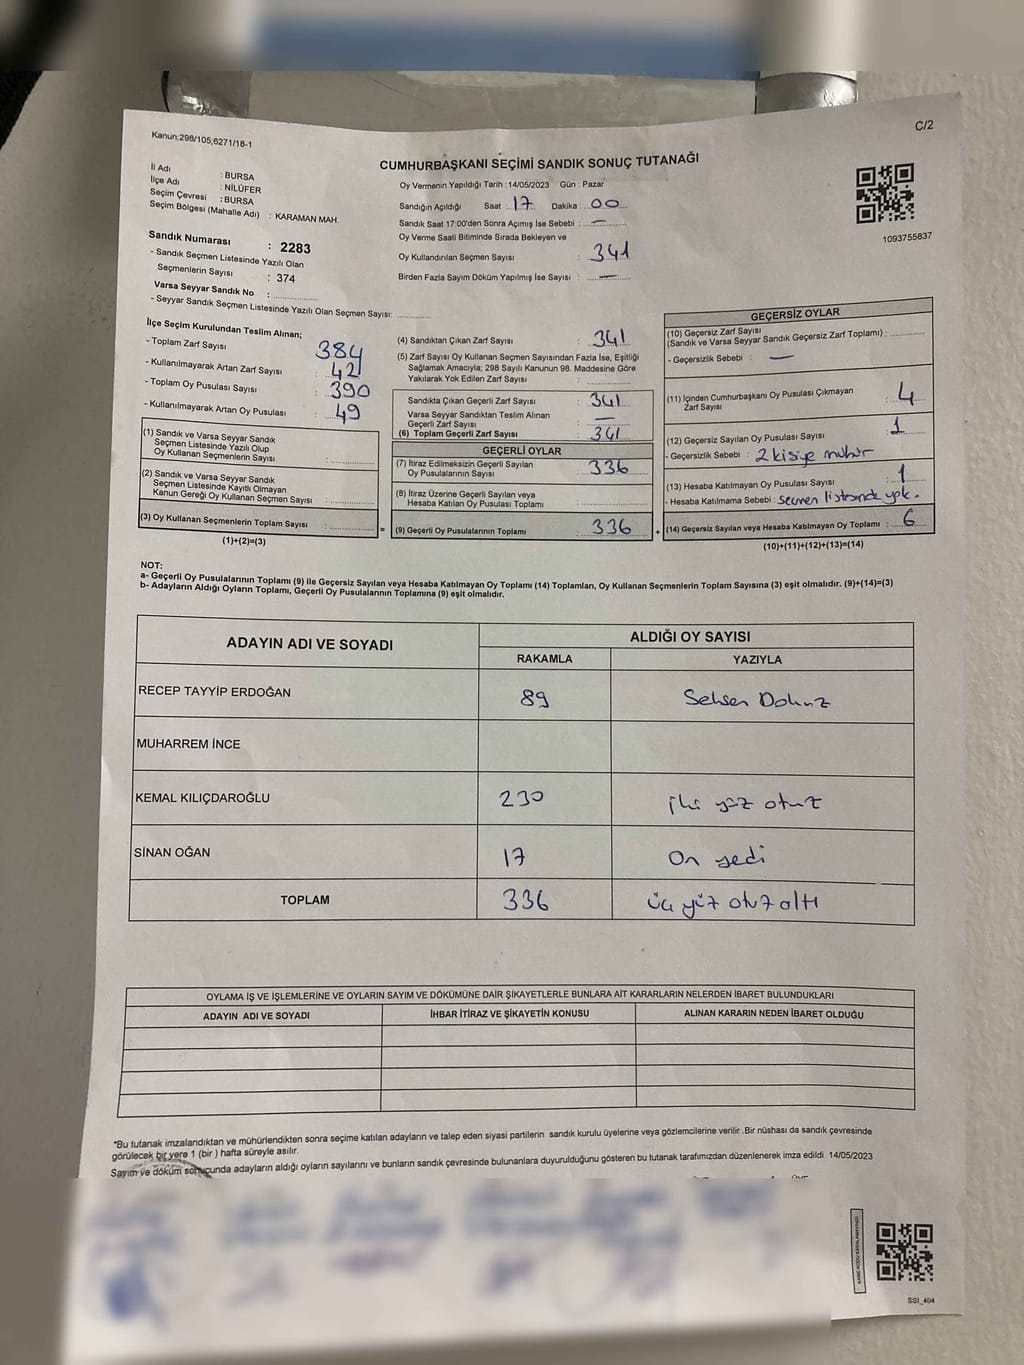 Kanun;298/105,6271/18-1
C/2
CUMHURBAŞKANI SEÇİMİ SANDIK SONUÇ TUTANAĞI
İl Adı : BURSA
İlçe Adı : NİLÜFER
Seçim Çevresi : BURSA
Seçim Bölgesi (Mahalle Adı) : KARAMAN MAH.
Oy Vermenin Yapıldığı Tarih :14/05/2023 Gün : Pazar
Sandığın Açıldığı Saat 17 Dakika : 00
Sandık Saat 17:00'den Sonra Açılmış İse Sebebi : —
Oy Verme Saati Bitiminde Sırada Bekleyen ve
Oy Kullandırılan Seçmen Sayısı : 341
Birden Fazla Sayım Döküm Yapılmış İse Sayısı : —
1093755837
Sandık Numarası : 2283
- Sandık Seçmen Listesinde Yazılı Olan
Seçmenlerin Sayısı : 374
Varsa Seyyar Sandık No :
- Seyyar Sandık Seçmen Listesinde Yazılı Olan Seçmen Sayısı:
İlçe Seçim Kurulundan Teslim Alınan;
- Toplam Zarf Sayısı : 384
- Kullanılmayarak Artan Zarf Sayısı : 42
- Toplam Oy Pusulası Sayısı : 390
- Kullanılmayarak Artan Oy Pusulası : 49
(1) Sandık ve Varsa Seyyar Sandık
Seçmen Listesinde Yazılı Olup
Oy Kullanan Seçmenlerin Sayısı :
(2) Sandık ve Varsa Seyyar Sandık
Seçmen Listesinde Kayıtlı Olmayan
Kanun Gereği Oy Kullanan Seçmen Sayısı :
(3) Oy Kullanan Seçmenlerin Toplam Sayısı :
(1)+(2)=(3)
=
(4) Sandıktan Çıkan Zarf Sayısı : 341
(5) Zarf Sayısı Oy Kullanan Seçmen Sayısından Fazla İse, Eşitliği
Sağlamak Amacıyla; 298 Sayılı Kanunun 98. Maddesine Göre
Yakılarak Yok Edilen Zarf Sayısı :
Sandıkta Çıkan Geçerli Zarf Sayısı : 341
Varsa Seyyar Sandıktan Teslim Alınan
Geçerli Zarf Sayısı : —
(6) Toplam Geçerli Zarf Sayısı : 341
GEÇERLİ OYLAR
(7) İtiraz Edilmeksizin Geçerli Sayılan
Oy Pusulalarının Sayısı : 336
(8) İtiraz Üzerine Geçerli Sayılan veya
Hesaba Katılan Oy Pusulası Toplamı :
(9) Geçerli Oy Pusulalarının Toplamı : 336
+
GEÇERSİZ OYLAR
(10) Geçersiz Zarf Sayısı
(Sandık ve Varsa Seyyar Sandık Geçersiz Zarf Toplamı) :
- Geçersizlik Sebebi : —
(11) İçinden Cumhurbaşkanı Oy Pusulası Çıkmayan
Zarf Sayısı : 4
(12) Geçersiz Sayılan Oy Pusulası Sayısı : 1
- Geçersizlik Sebebi : 2 kişiye mühür
(13) Hesaba Katılmayan Oy Pusulası Sayısı : 1
- Hesaba Katılmama Sebebi : seçmen listesinde yok.
(14) Geçersiz Sayılan veya Hesaba Katılmayan Oy Toplamı : 6
(10)+(11)+(12)+(13)=(14)
NOT:
a- Geçerli Oy Pusulalarının Toplamı (9) ile Geçersiz Sayılan veya Hesaba Katılmayan Oy Toplamı (14) Toplamları, Oy Kullanan Seçmenlerin Toplam Sayısına (3) eşit olmalıdır. (9)+(14)=(3)
b- Adayların Aldığı Oyların Toplamı, Geçerli Oy Pusulalarının Toplamına (9) eşit olmalıdır.
ADAYIN ADI VE SOYADI
ALDIĞI OY SAYISI
RAKAMLA YAZIYLA
RECEP TAYYİP ERDOĞAN 89 Seksen Dokuz
MUHARREM İNCE
KEMAL KILIÇDAROĞLU 230 iki yüz otuz
SİNAN OĞAN 17 On yedi
TOPLAM 336 üç yüz otuz altı
OYLAMA İŞ VE İŞLEMLERİNE VE OYLARIN SAYIM VE DÖKÜMÜNE DAİR ŞİKAYETLERLE BUNLARA AİT KARARLARIN NELERDEN İBARET BULUNDUKLARI
ADAYIN ADI VE SOYADI İHBAR İTİRAZ VE ŞİKAYETİN KONUSU ALINAN KARARIN NEDEN İBARET OLDUĞU
*Bu tutanak imzalandıktan ve mühürlendikten sonra seçime katılan adayların ve talep eden siyasi partilerin sandık kurulu üyelerine veya gözlemcilerine verilir .Bir nüshası da sandık çevresinde
görülecek bir yere 1 (bir ) hafta süreyle asılır.
Sayım ve döküm sonucunda adayların aldığı oyların sayılarını ve bunların sandık çevresinde bulunanlara duyurulduğunu gösteren bu tutanak tarafımızdan düzenlenerek imza edildi. 14/05/2023
SSI_404